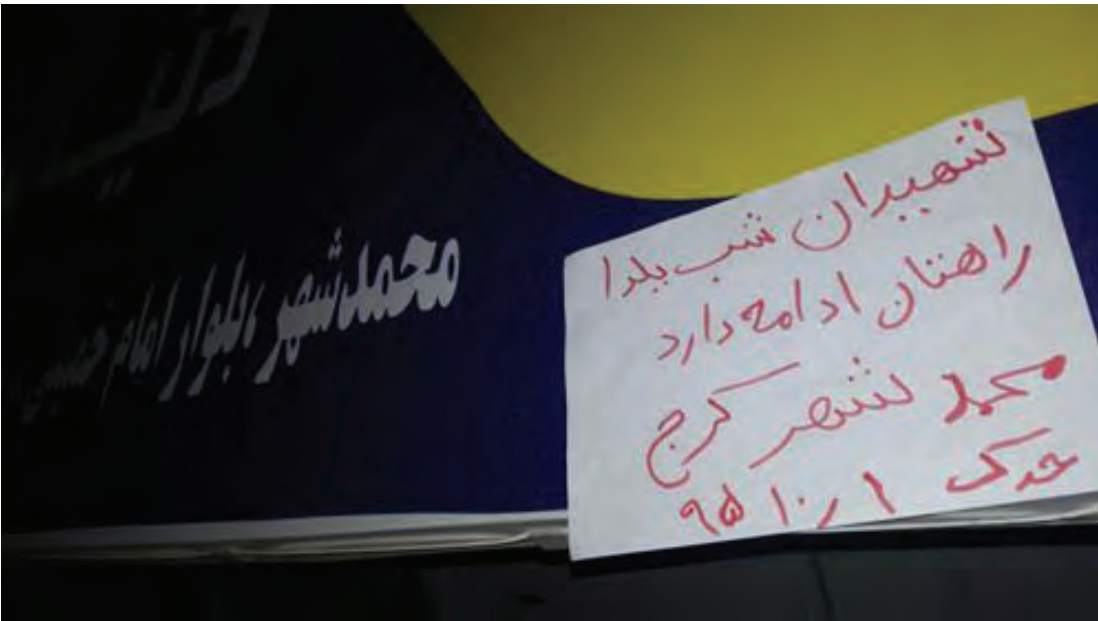 محمدشهر، بلوار امام حسین
شهیدان شب یلدا
راهتان ادامه دارد
محمد شهر کرج
حدک ۱ ر۱۰ ۹۵